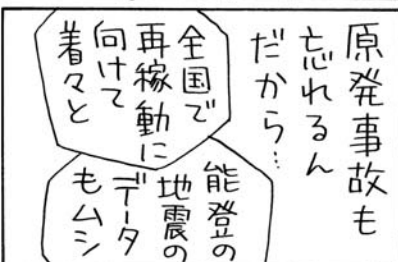 原発事故も
忘れるん
だから…
全国で
再稼動に
向けて
着々と
能登の
地震の
データ
もムシ